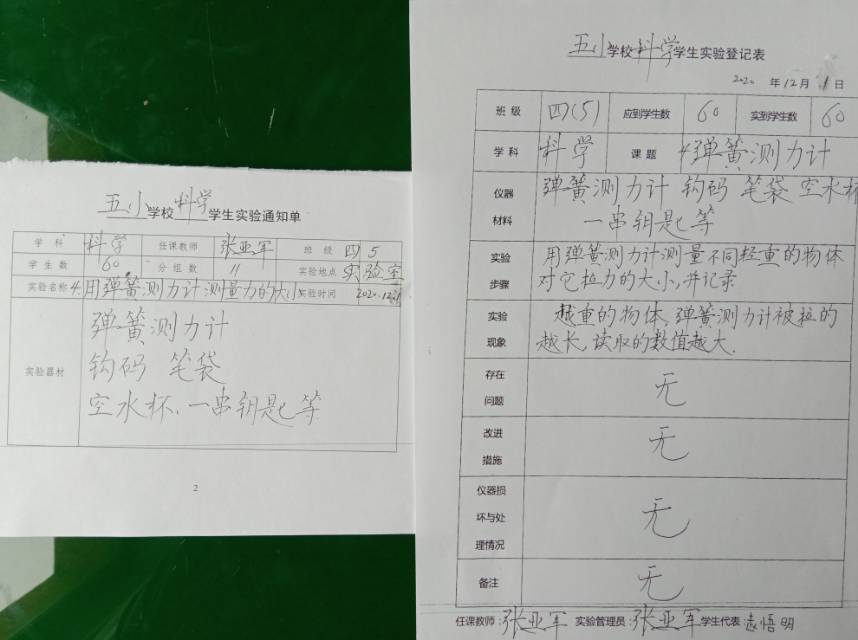 五小学校科学学生实验通知单
学科 科学 任课教师 张亚军 班级 四5
学生数 60 分组数 11 实验地点 实验室
实验名称 4.用弹簧测力计测量力的大小 实验时间 2020.12.1
实验器材
弹簧测力计
钩码 笔袋
空水杯、一串钥匙等
2
五小学校科学学生实验登记表
2020 年12月1日
班级 四(5) 应到学生数 60 实到学生数 60
学科 科学 课题 4弹簧测力计
仪器材料 弹簧测力计 钩码 笔袋 空水杯
一串钥匙等
实验步骤 用弹簧测力计测量不同轻重的物体
对它拉力的大小,并记录
实验现象 越重的物体,弹簧测力计被拉的
越长,读取的数值越大.
存在问题 无
改进措施 无
仪器损坏与处理情况 无
备注 无
任课教师:张亚军 实验管理员:张亚军 学生代表:悟明